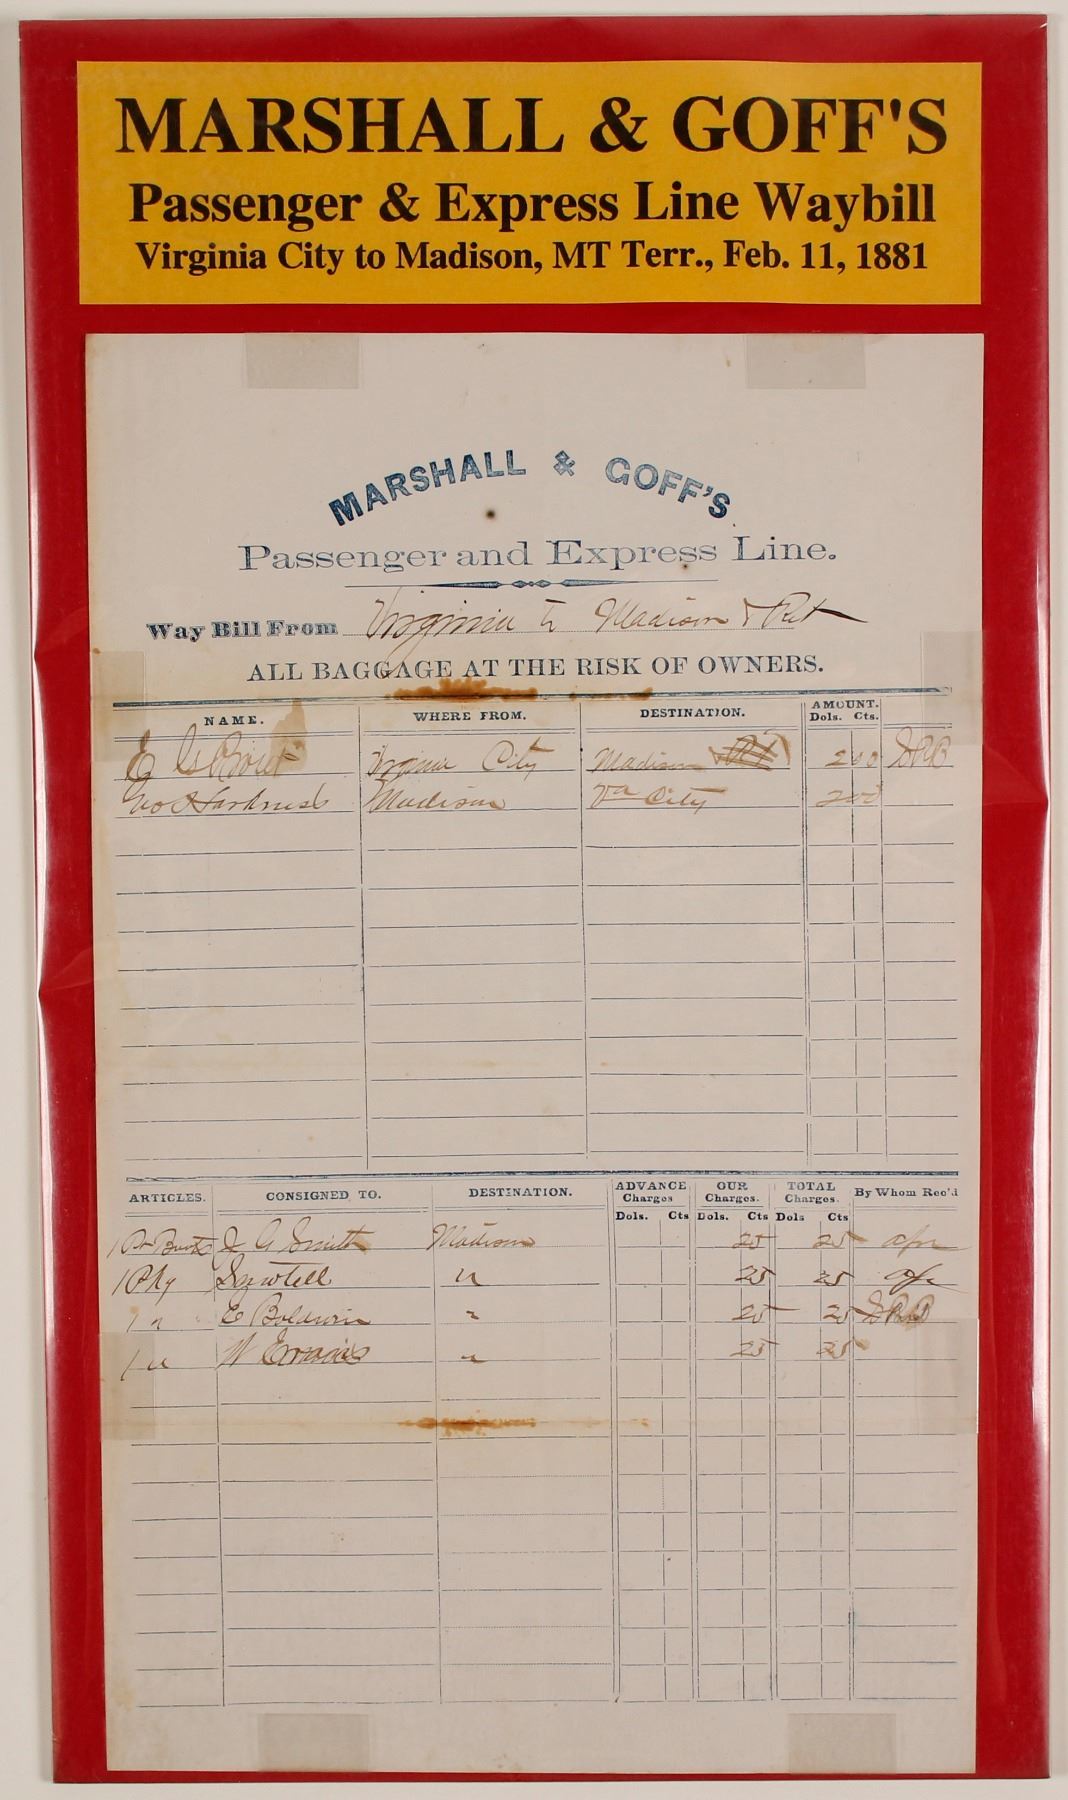 MARSHALL & GOFF'S
Passenger & Express Line Waybill
Virginia City to Madison, MT Terr., Feb. 11, 1881
MARSHALL & GOFF'S
Passenger and Express Line.
Way Bill From Virginia to Madison & Ret
ALL BAGGAGE AT THE RISK OF OWNERS.
NAME. WHERE FROM. DESTINATION. AMOUNT. Dols. Cts.
E Virginia City Madison 2 00
Madison Va City 2 00
ARTICLES. CONSIGNED TO. DESTINATION. ADVANCE Charges Dols. Cts OUR Charges. Dols. Cts TOTAL Charges. Dols Cts By Whom Rec'd
1 J G Smith Madison 25 25
1 Pkg Sawtell " 25 25
1 " E Boldwin " 25 25
1 " W " 25 25